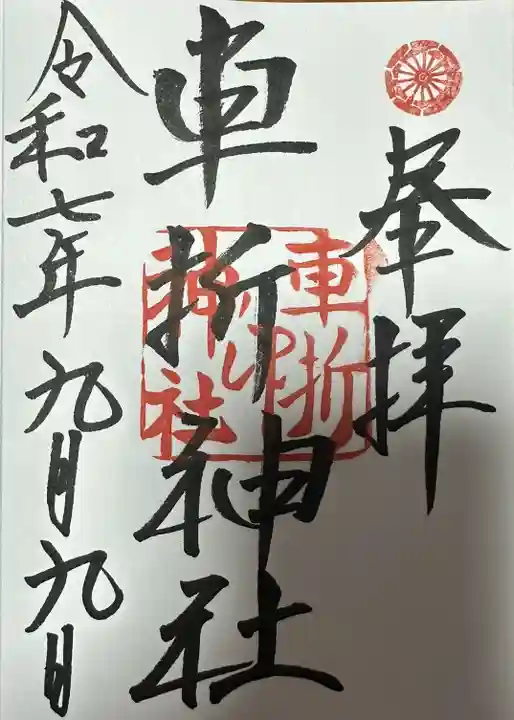 奉拝
車折神社
車折
之印
神社
令和七年九月九日